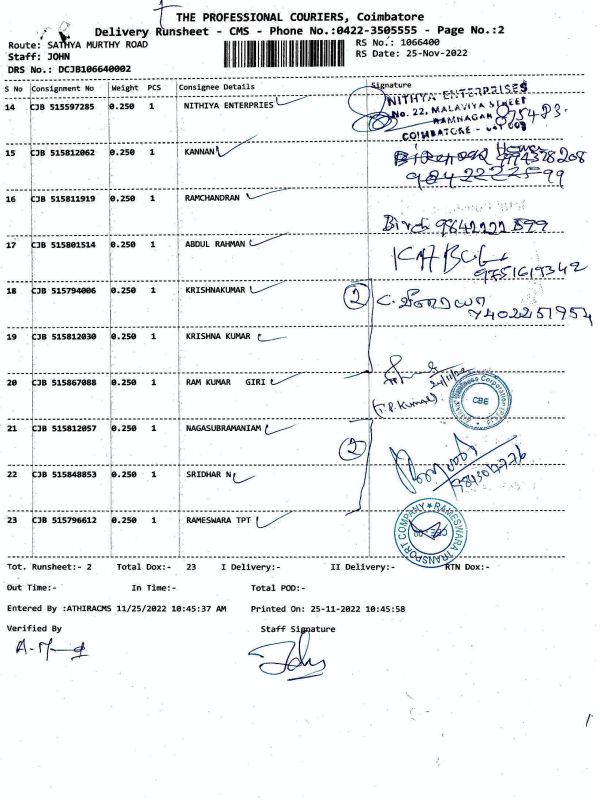 THE PROFESSIONAL COURIERS, Coimbatore
Delivery Runsheet - CMS - Phone No.:0422-3505555 - Page No.:2
Route: SATHYA MURTHY ROAD RS No.: 1066400
Staff: JOHN RS Date: 25-Nov-2022
DRS No.: DCJB106640002
S No Consignment No Weight PCS Consignee Details Signature
14 CJB 515597285 0.250 1 NITHIYA ENTERPRIES
NITHIYA ENTERPRISES
No. 22, MALAVIYA STREET
RAMNAGAR
COIMBATORE -
15 CJB 515812062 0.250 1 KANNAN
16 CJB 515811919 0.250 1 RAMCHANDRAN
17 CJB 515801514 0.250 1 ABDUL RAHMAN
9751619342
18 CJB 515794006 0.250 1 KRISHNAKUMAR 2
19 CJB 515812030 0.250 1 KRISHNA KUMAR
20 CJB 515867088 0.250 1 RAM KUMAR GIRI
(T.P. Kumar)
CBE
21 CJB 515812057 0.250 1 NAGASUBRAMANIAM 2
22 CJB 515848853 0.250 1 SRIDHAR N
23 CJB 515796612 0.250 1 RAMESWARA TPT
RAMESWARA TRANSPORT COMPANY
Tot. Runsheet:- 2 Total Dox:- 23 I Delivery:- II Delivery:- RTN Dox:-
Out Time:- In Time:- Total POD:-
Entered By :ATHIRACMS 11/25/2022 10:45:37 AM Printed On: 25-11-2022 10:45:58
Verified By Staff Signature